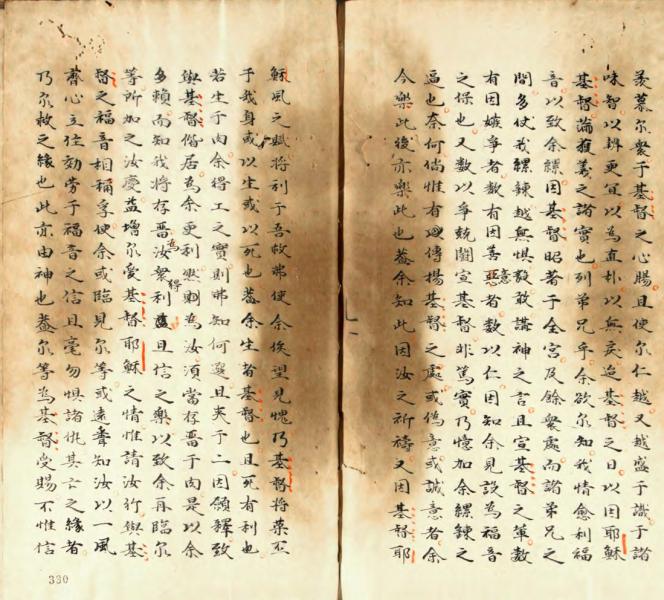 羨慕尔衆于基督之心腸且使尔仁越又越盛于識于諸
味智以辨更宜以為直朴以無戾迨基督之日以因耶穌
基督滿穫義之諸實也列弟兄乎余欲尔知我情愈利福
音以致余縲因基督昭著于全宫及餘衆處而諸弟兄之
間多仗我縲鍊越無惧敢講神之言且宣基督之輩數
有因嫉争者數有因善意者數以仁因知余見設為福音
之保也又數以争兢闘宣基督非篤實乃憶加余縲鍊之
逼也奈何倘惟有傳揚基督之處或偽意或誠意者余
今樂此後亦樂此也蓋余知此因汝之祈禱又因基督耶
穌風之賦将利于吾救弗使余俟望見愧乃基督将榮丕
于我身或以生或以死也蓋余生者基督也且死有利也
若生于肉余得工之實則弗知何選且夹于二因願釋致
與基督偕居為余更利然則為汝湏當存畱于肉是以余
多賴而知我将存畱為汝衆得利益且信之樂以致余再臨尔
等所加之汝慶益增尔爱基督耶穌之情惟請汝行與基
督之福音相稱孚使余或臨見尔等或遠聽知汝以一風
齊心立住効劳于福音之信且毫勿惧諸仇其亡之緣者
乃尔救之緣也此亦由神也蓋尔等為基督受賜不惟信
330